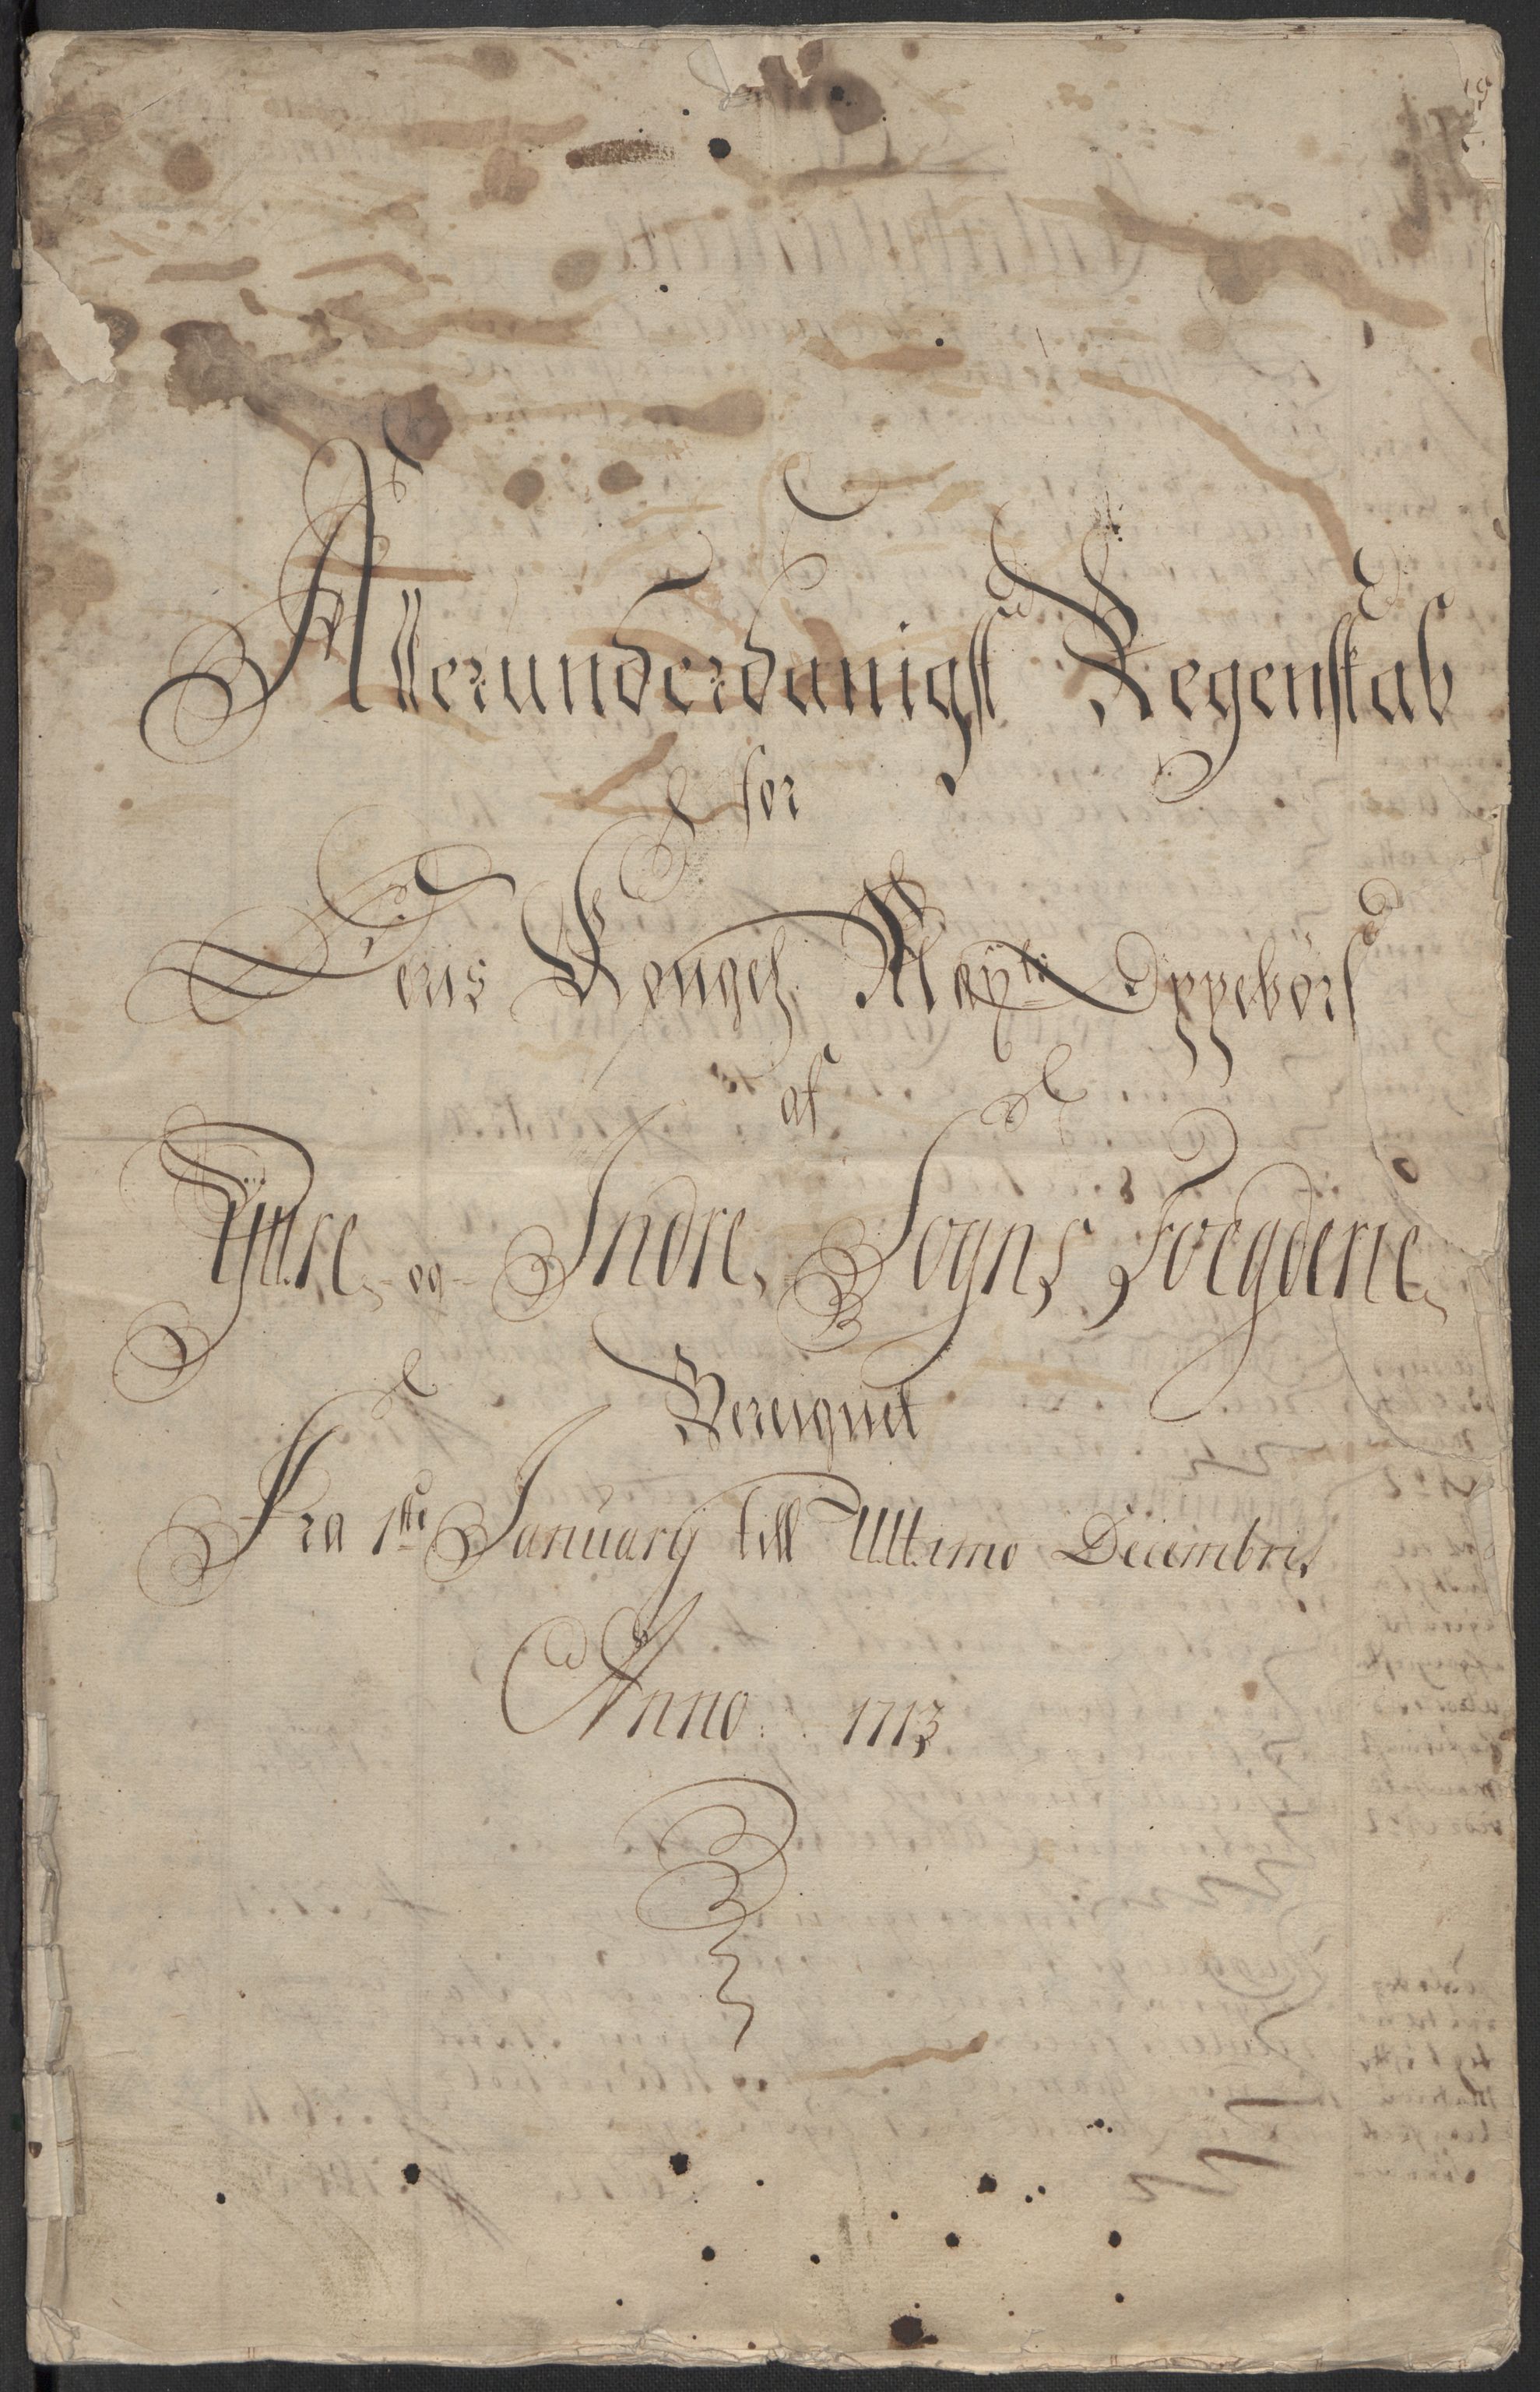 Allerunderdanigst Regenskab
for
Deris Kongel: Mayts Oppebørsel
af
Yttre og Indre Sogns Foegderie
Bereignet
Fra 1ste January till Ultimo Decembris
Anno 1713